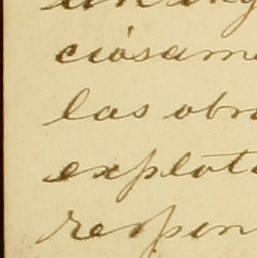 ciósame
las obr
explota
respon